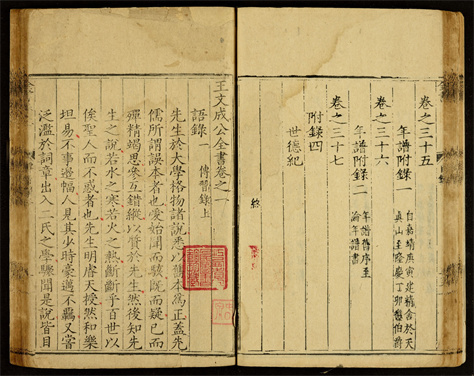 卷之三十五
年譜附錄一
自嘉靖庚寅建精舍於天
真山至隆慶丁卯復伯爵
卷之三十六
年譜附錄二
年譜舊序至
論年譜書
卷之三十七
附錄四
世德紀
終
王文成公全書卷之一
語錄一 傳習錄上
先生於大學格物諸說悉以舊本為正蓋先
儒所謂誤本者也愛始聞而駭既而疑已而
殫精竭思參互錯縱以質於先生然後知先
生之說若水之寒若火之熱斷斷乎百世以
俟聖人而不惑者也先生明睿天授然和樂
坦易不事邊幅人見其少時豪邁不羈又嘗
泛濫於詞章出入二氏之學驟聞是說皆目